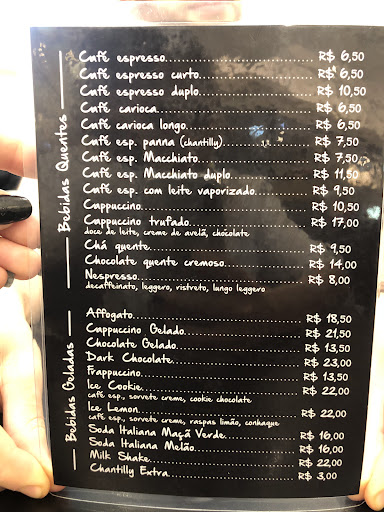 Bebidas Quentes
Café espresso R$ 6,50
Café espresso curto R$ 6,50
Café espresso duplo R$ 10,50
Café carioca R$ 6,50
Café carioca longo R$ 6,50
Café esp. panna (chantilly) R$ 7,50
Café esp. Macchiato R$ 7,50
Café esp. Macchiato duplo R$ 11,50
Café esp. com leite vaporizado R$ 9,50
Cappuccino R$ 10,50
Cappuccino trufado R$ 17,00
doce de leite, creme de avelã, chocolate
Chá quente R$ 9,50
Chocolate quente cremoso R$ 14,00
Nespresso R$ 8,00
decaffeinato, leggero, ristreto, lungo leggero
Bebidas Geladas
Affogato R$ 18,50
Cappuccino Gelado R$ 21,50
Chocolate Gelado R$ 13,50
Dark Chocolate R$ 23,00
Frappuccino R$ 13,50
Ice Cookie R$ 22,00
café esp., sorvete creme, cookie chocolate
Ice Lemon R$ 22,00
café esp., sorvete creme, raspas limão, conhaque
Soda Italiana Maçã Verde R$ 16,00
Soda Italiana Melão R$ 16,00
Milk Shake R$ 22,00
Chantilly Extra R$ 3,00